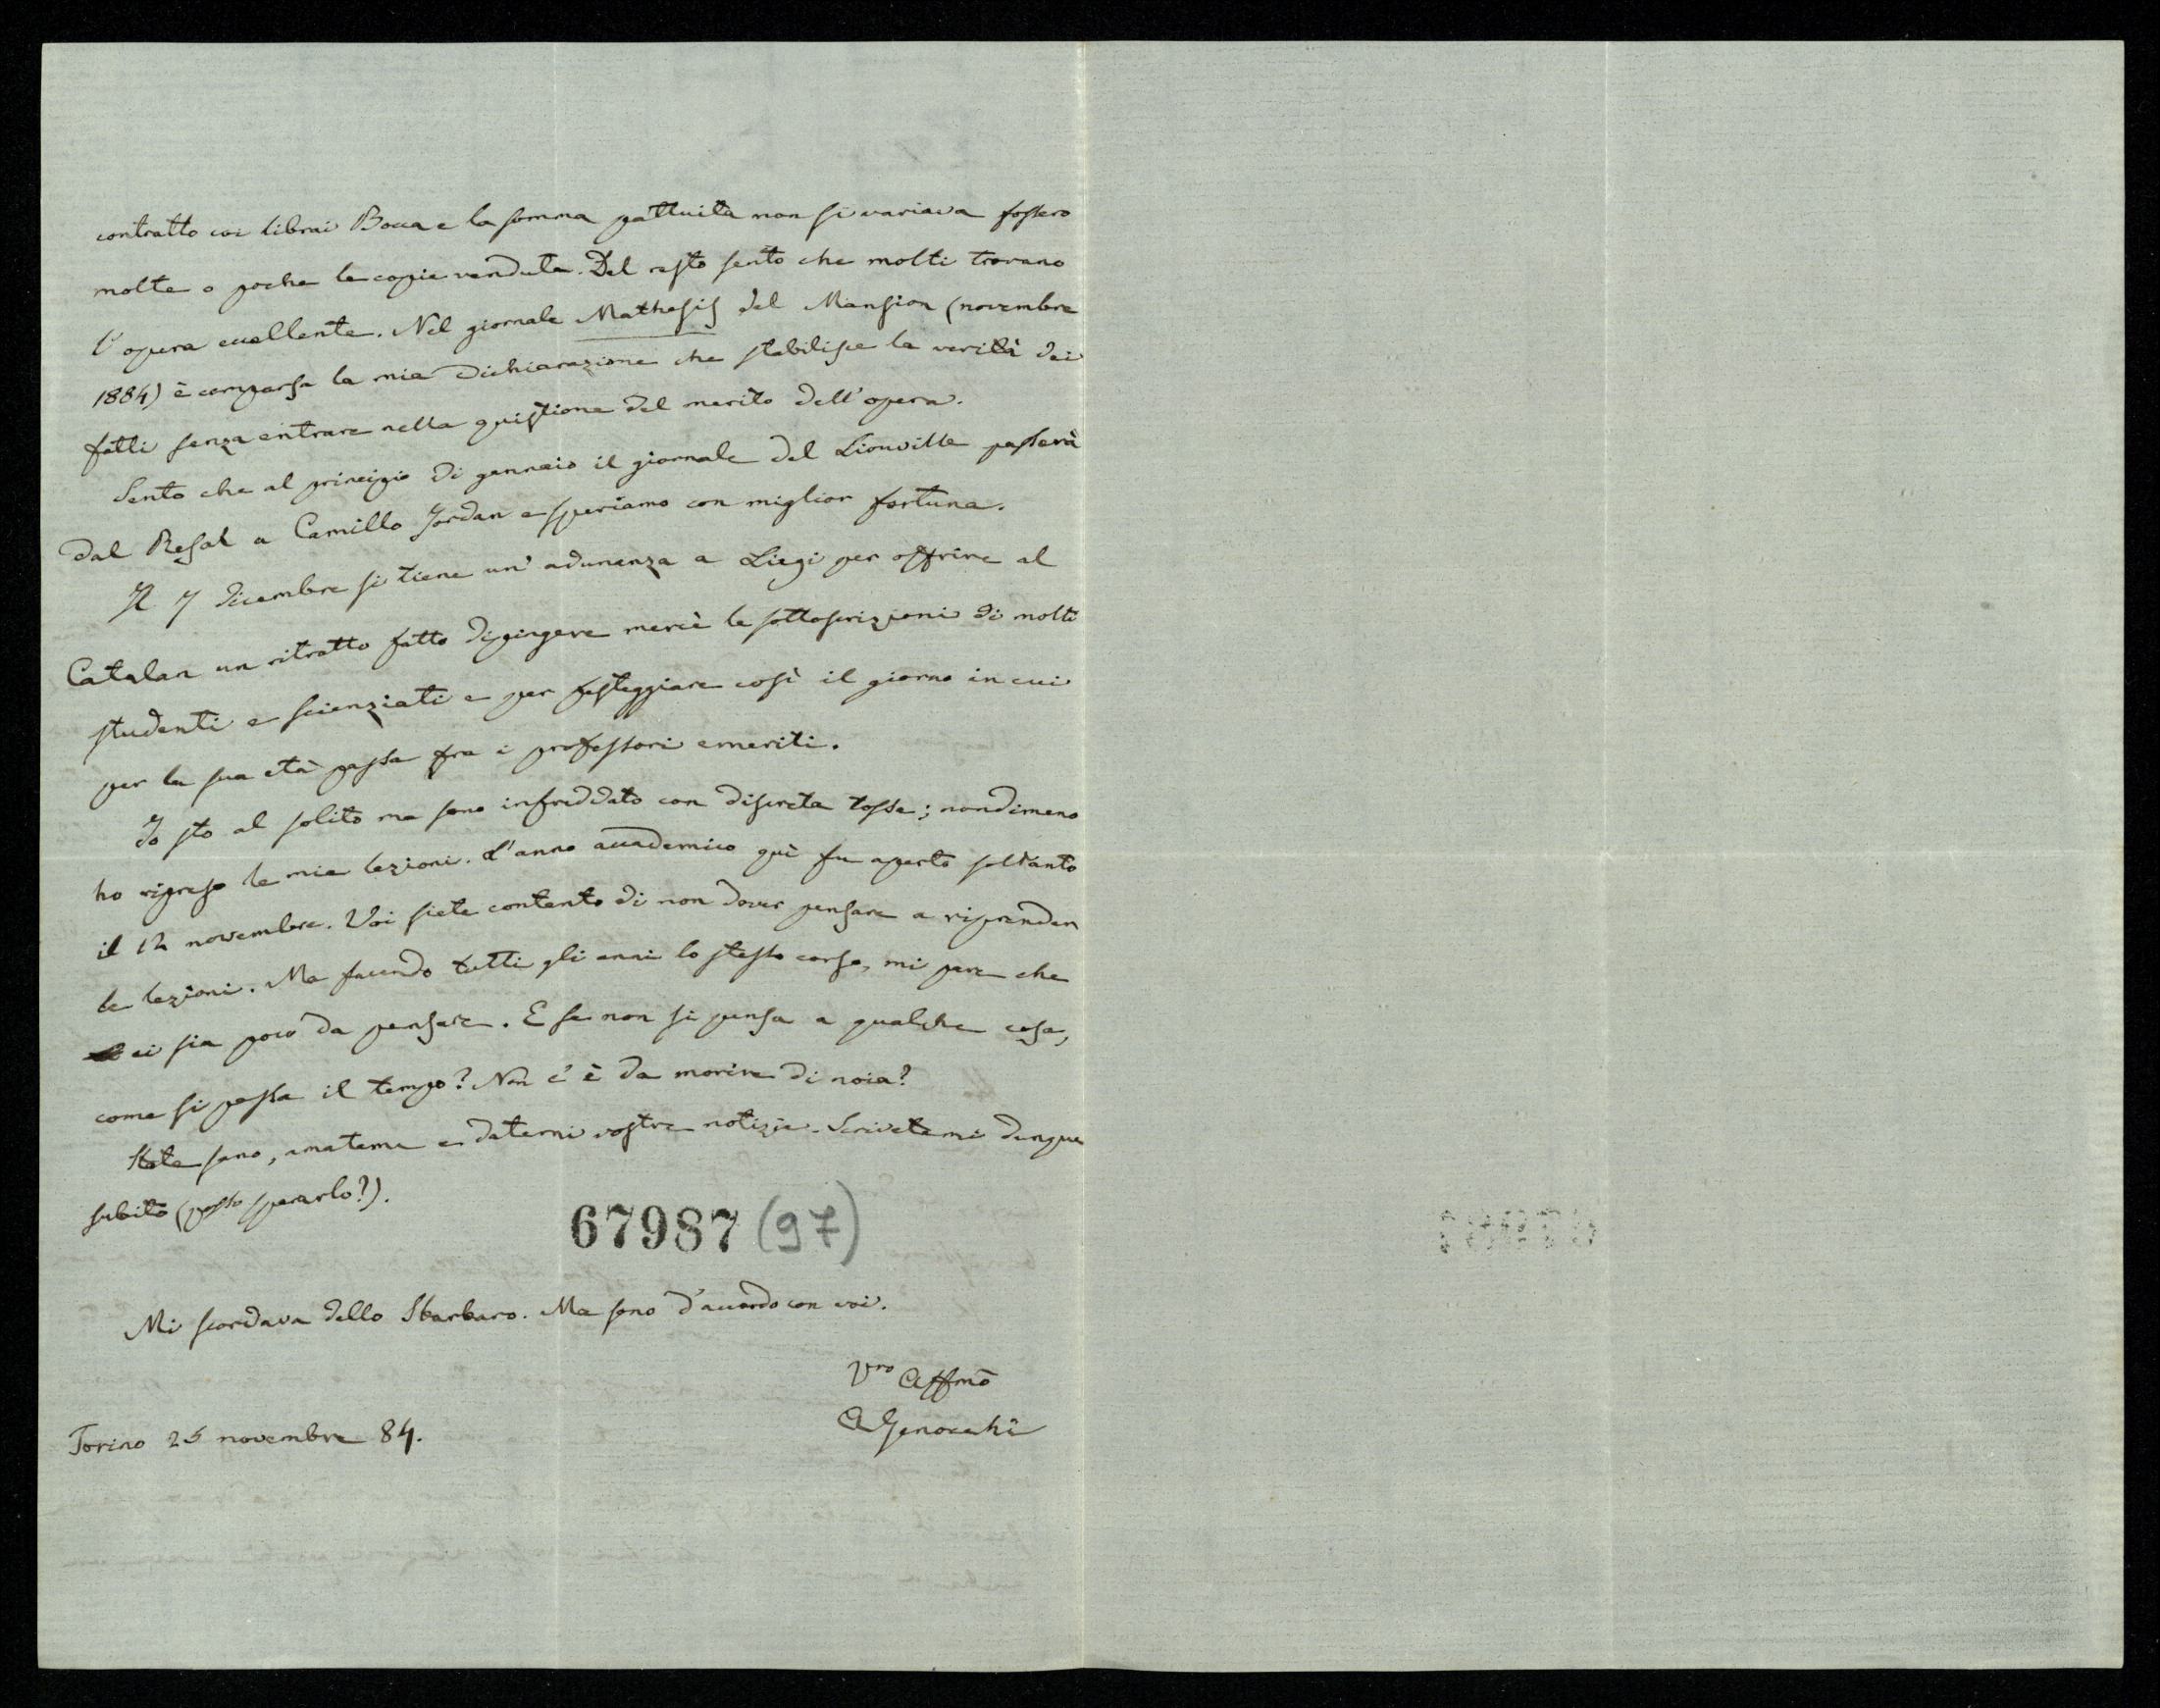 contratto coi librai Bocca e la somma pattuita non si variava fossero
molte o poche le copie vendute. Del resto sento che molti trovano
l'opera eccellente. Nel giornale Mathesis del Mansion (novembre
1884) è comparsa la mia dichiarazione che stabilisce la verità dei
fatti senza entrare nella quistione del merito dell'opera.
Sento che al principio di gennaio il giornale del Liouville passerà
dal Resal a Camillo Jordan e speriamo con miglior fortuna.
Il 7 dicembre si tiene un' adunanza a Liegi per offrire al
Catalan un ritratto fatto dipingere mercè le sottoscrizioni di molti
studenti e scienziati e per festeggiare così il giorno in cui
per la sua età passa fra i professori emeriti.
Io sto al solito ma sono infreddato con discreta tosse; nondimeno
ho ripreso le mie lezioni. L'anno accademico quì fu aperto soltanto
il 12 novembre. Voi siete contento di non dover pensare a riprender
le lezioni. Ma facendo tutti gli anni lo stesso corso, mi pare che
ci sia poco da pensare. E se non si pensa a qualche cosa,
come si passa il tempo? Non c'è da morire di noia?
State sano, amatemi e datemi vostre notizie. Scrivetemi dunque
subito (posso sperarlo?).
67987 (97)
Mi scordava dello Sbarbaro. Ma sono d'accordo con voi.
Vro Affmo
A Genocchi
Torino 25 novembre 84.